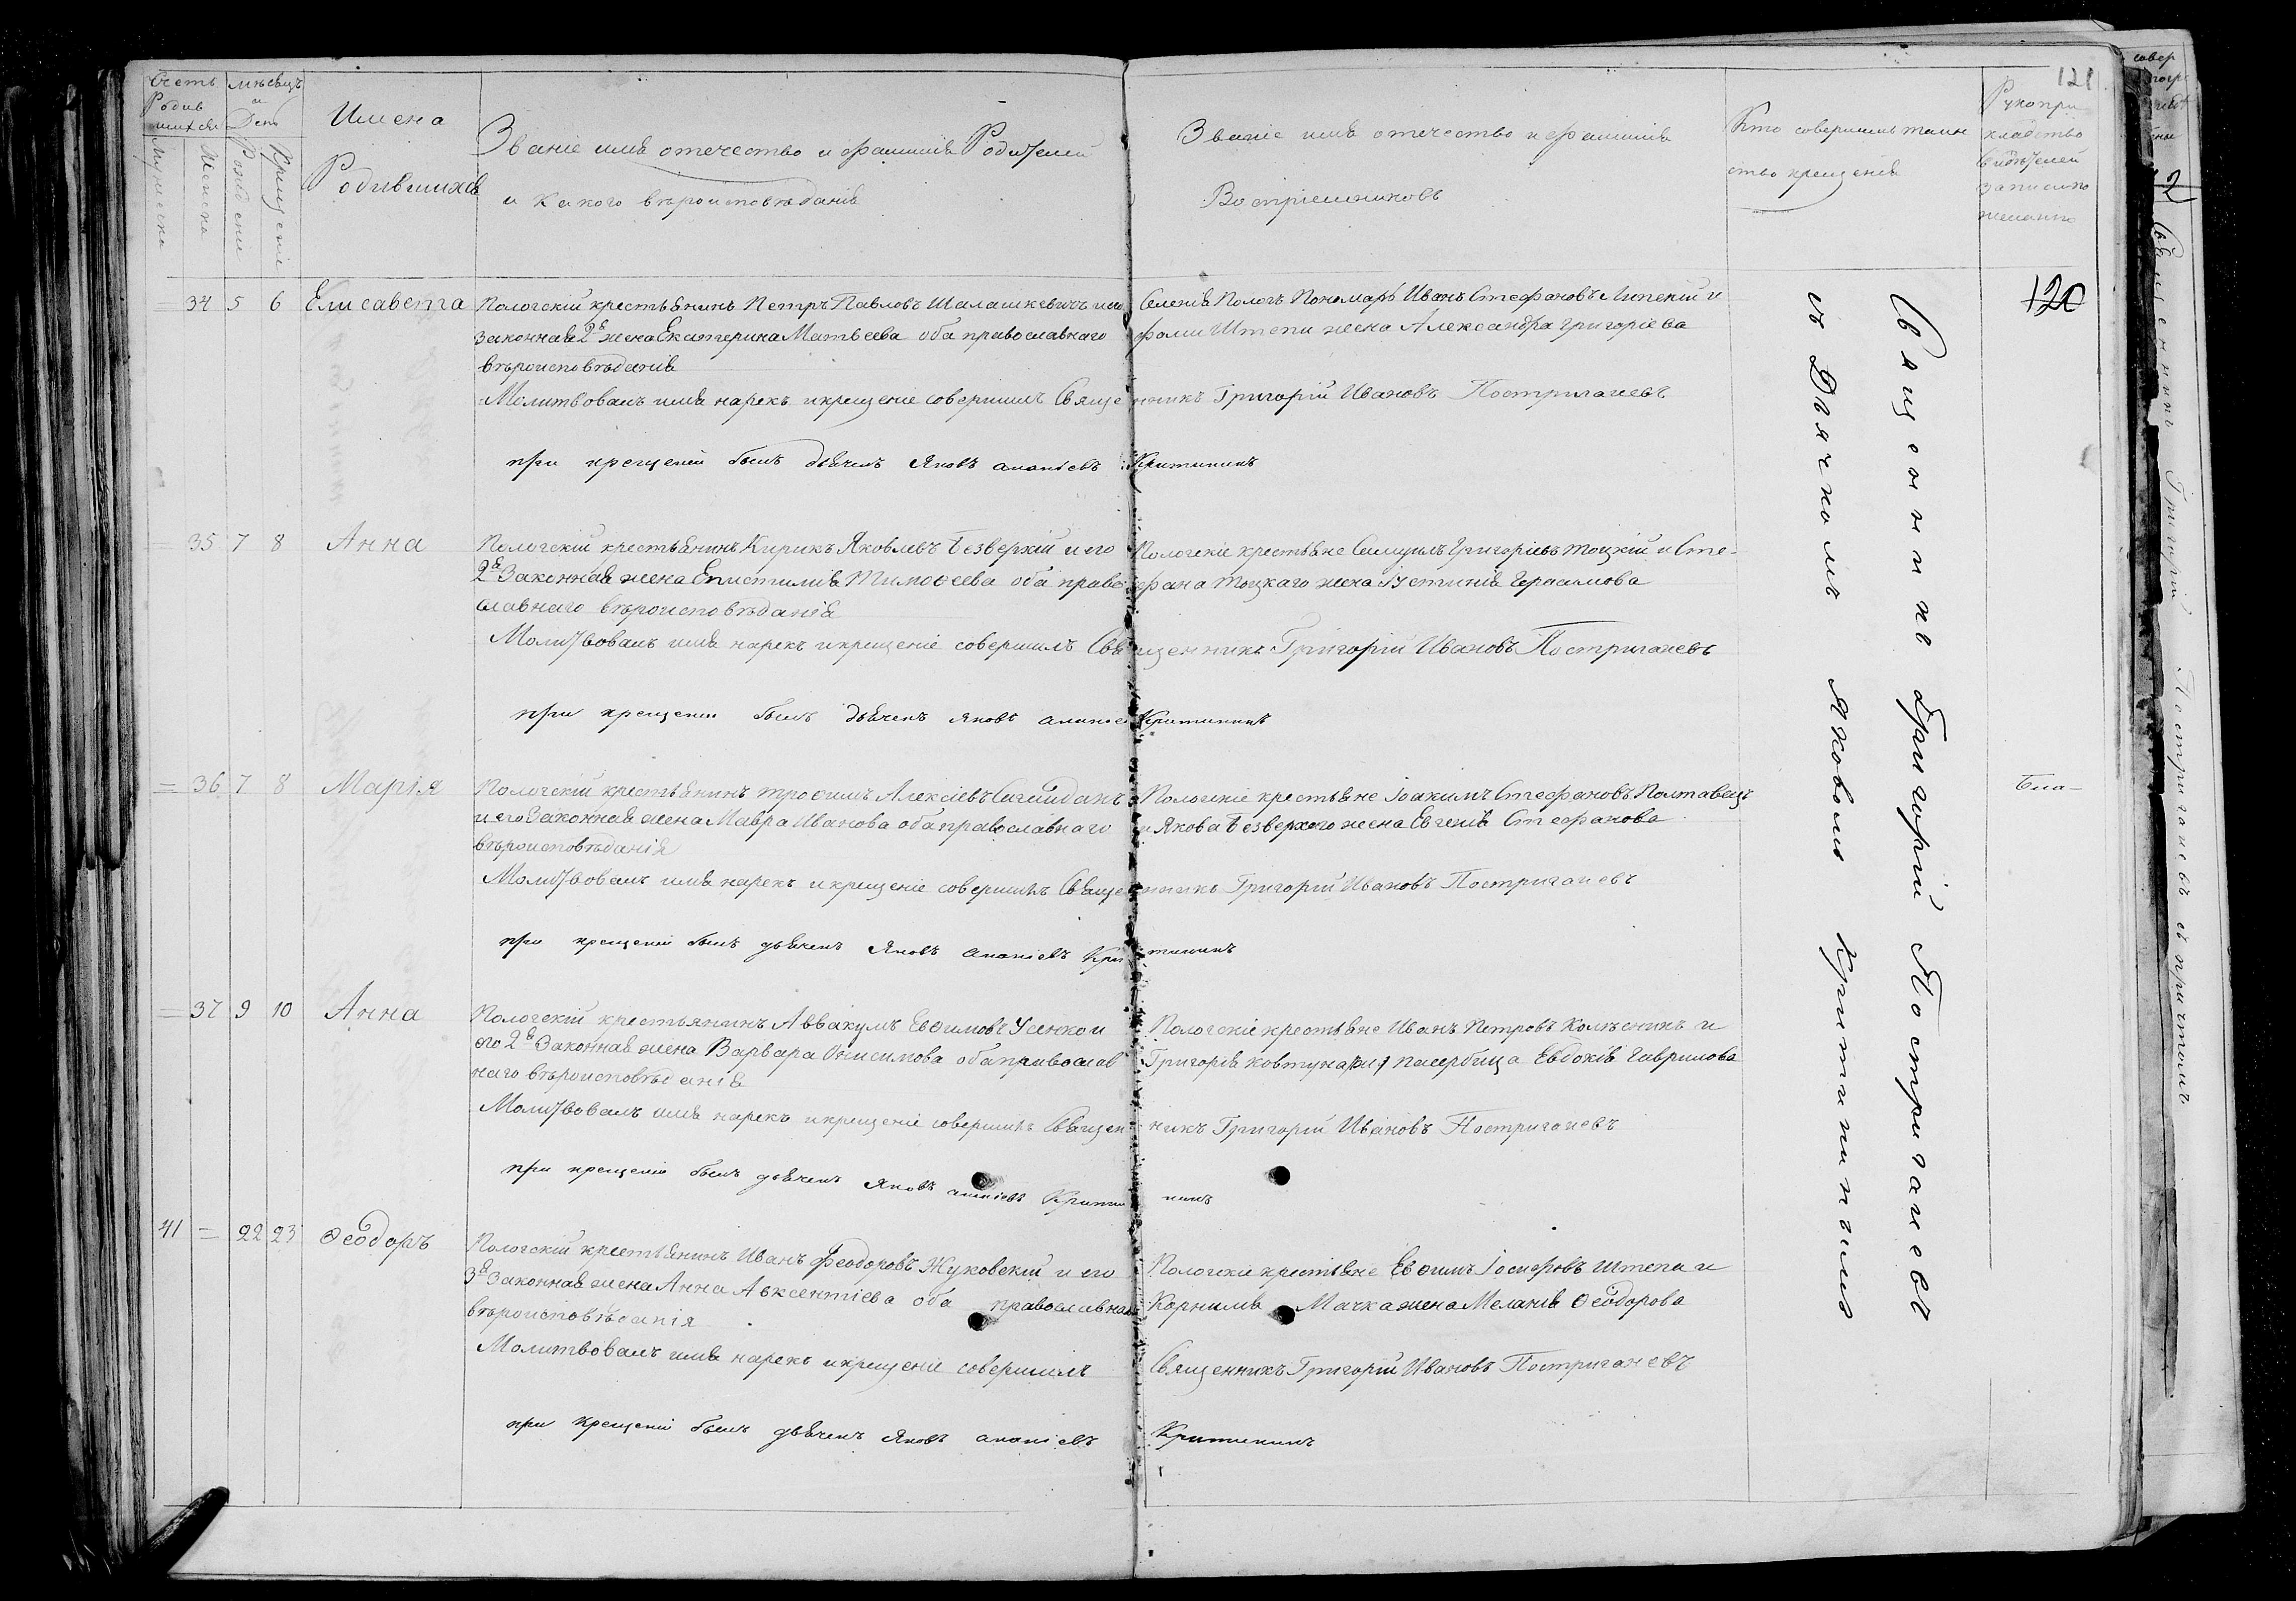 121
Счетъ Родившихся
Мѣсяцъ и День
Имена Родившихся
Званіе имя отечество и фамилія Родителей
и какого вѣроисповѣданія
Званіе имя отечество и фамилія
Воспріемниковъ
Кто совершилъ таин
ство крещенія
Рукопри
кладство
свидѣтелей
записи по
желанію
Мужеска
Женска
Рожденія
Крещенія
= 34 5 6 Елисавета
Пологскій крестьянинъ Петръ Павловъ Шалашкевичъ и его
законная 2я жена Екатерина Матвѣева оба православнаго
вѣроисповѣданія
Селенія Пологъ Пономарь Иванъ Стефановъ Липскій и
Фомы Штепи жена Александра Григоріева
Молитвовалъ имя нарекъ и крещеніе совершилъ Священникъ Григорій Ивановъ Постригачевъ
при крещеніи былъ дьячекъ Яковъ Ананіевъ Критининъ
120
= 35 7 8 Анна
Пологскій крестьянинъ Кирикъ Яковлевъ Безверхій и его
2я Законная жена Епистимія Тимоѳеева оба право
славнаго вѣроисповѣданія
Пологскіе крестьяне Самуилъ Григоріевъ Тоцкій и Сте-
фана Тоцкаго жена Іустинія Герасимова
Молитвовалъ имя нарекъ и крещеніе совершилъ Священникъ Григорій Ивановъ Постригачевъ
при крещеніи былъ дьячекъ Яковъ Ананіев Критининъ
= 36 7 8 Марія
Пологскій крестьянинъ Трофимъ Алексіевъ Сагайданъ
и его Законная жена Мавра Иванова оба православнаго
вѣроисповѣданія
Пологскіе крестьяне Іоакимъ Стефановъ Полтавецъ
и Якова Безверхого жена Евгенія Стефанова
Молитвовалъ имя нарекъ и крещеніе совершилъ Священникъ Григорій Ивановъ Постригачевъ
при крещеніи былъ дьячекъ Яковъ Ананіевъ Критининъ
= 37 9 10 Анна
Пологскій крестьянинъ Аввакумъ Евѳимовъ Усенко и
его 2я Законная жена Варвара Онисимова оба православ
наго вѣроисповѣданія
Пологскіе крестьяне Иванъ Петровъ Колѣсникъ и
Григорія Ковтуна пасербица Евдокія Гаврилова
Молитвовалъ имя нарекъ и крещеніе совершилъ Священникъ Григорій Ивановъ Постригачевъ
при крещеніи былъ дьячекъ Яковъ Ананіевъ Критининъ
41 = 22 23 Ѳеодоръ
Пологскій крестьянинъ Иванъ Феодоровъ Жуковскій и его
3я Законная жена Анна Авксентіева оба православнаго
вѣроисповѣданія
Пологскіе крестьяне Евѳимъ Іосифовъ Штепа и
Корнилія Мачка жена Меланія Ѳеодорова
Молитвовалъ имя нарекъ и крещеніе совершилъ Священникъ Григорій Ивановъ Постригачевъ
при крещеніи былъ дьячекъ Яковъ Ананіевъ Критининъ
Священникъ Григорій Постригачевъ
съ Дьячкомъ Яковомъ Критининымъ
Священникъ Григорій Постригачевъ съ причтомъ